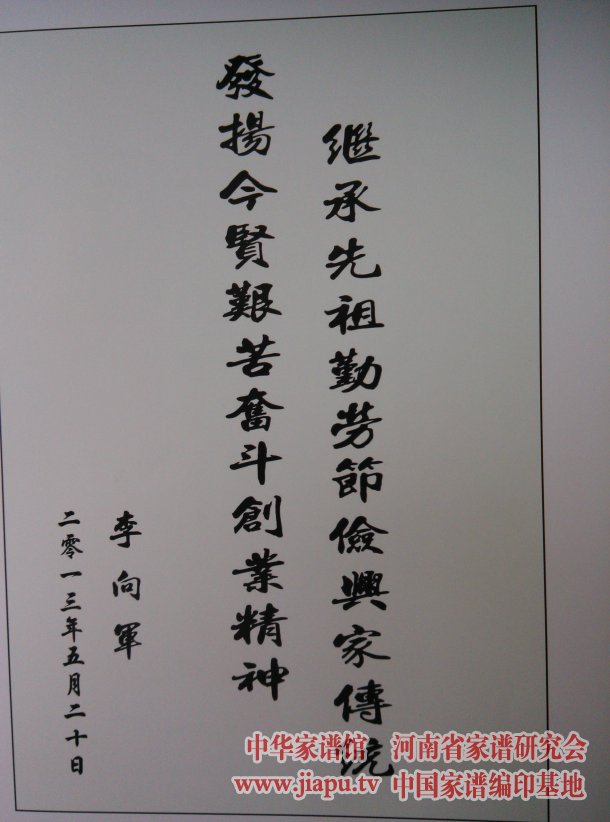 继承先祖勤劳節儉興家傳統
發揚今賢艱苦奮斗創業精神
李向軍
二零一三年五月二十日
中华家谱馆 河南省家谱研究会
www.jiapu.tv 中国家谱编印基地